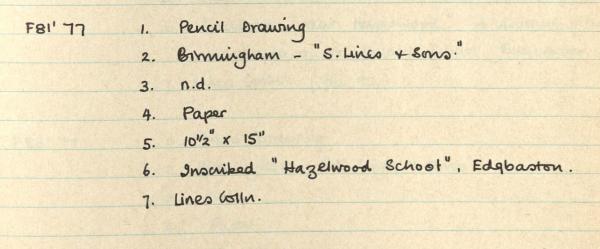 F81' 77 1. Pencil Drawing
2. Birmingham - "S. Lines & Sons."
3. n.d.
4. Paper
5. 10½" x 15"
6. Inscribed "Hazelwood School", Edgbaston.
7. Lines Colln.